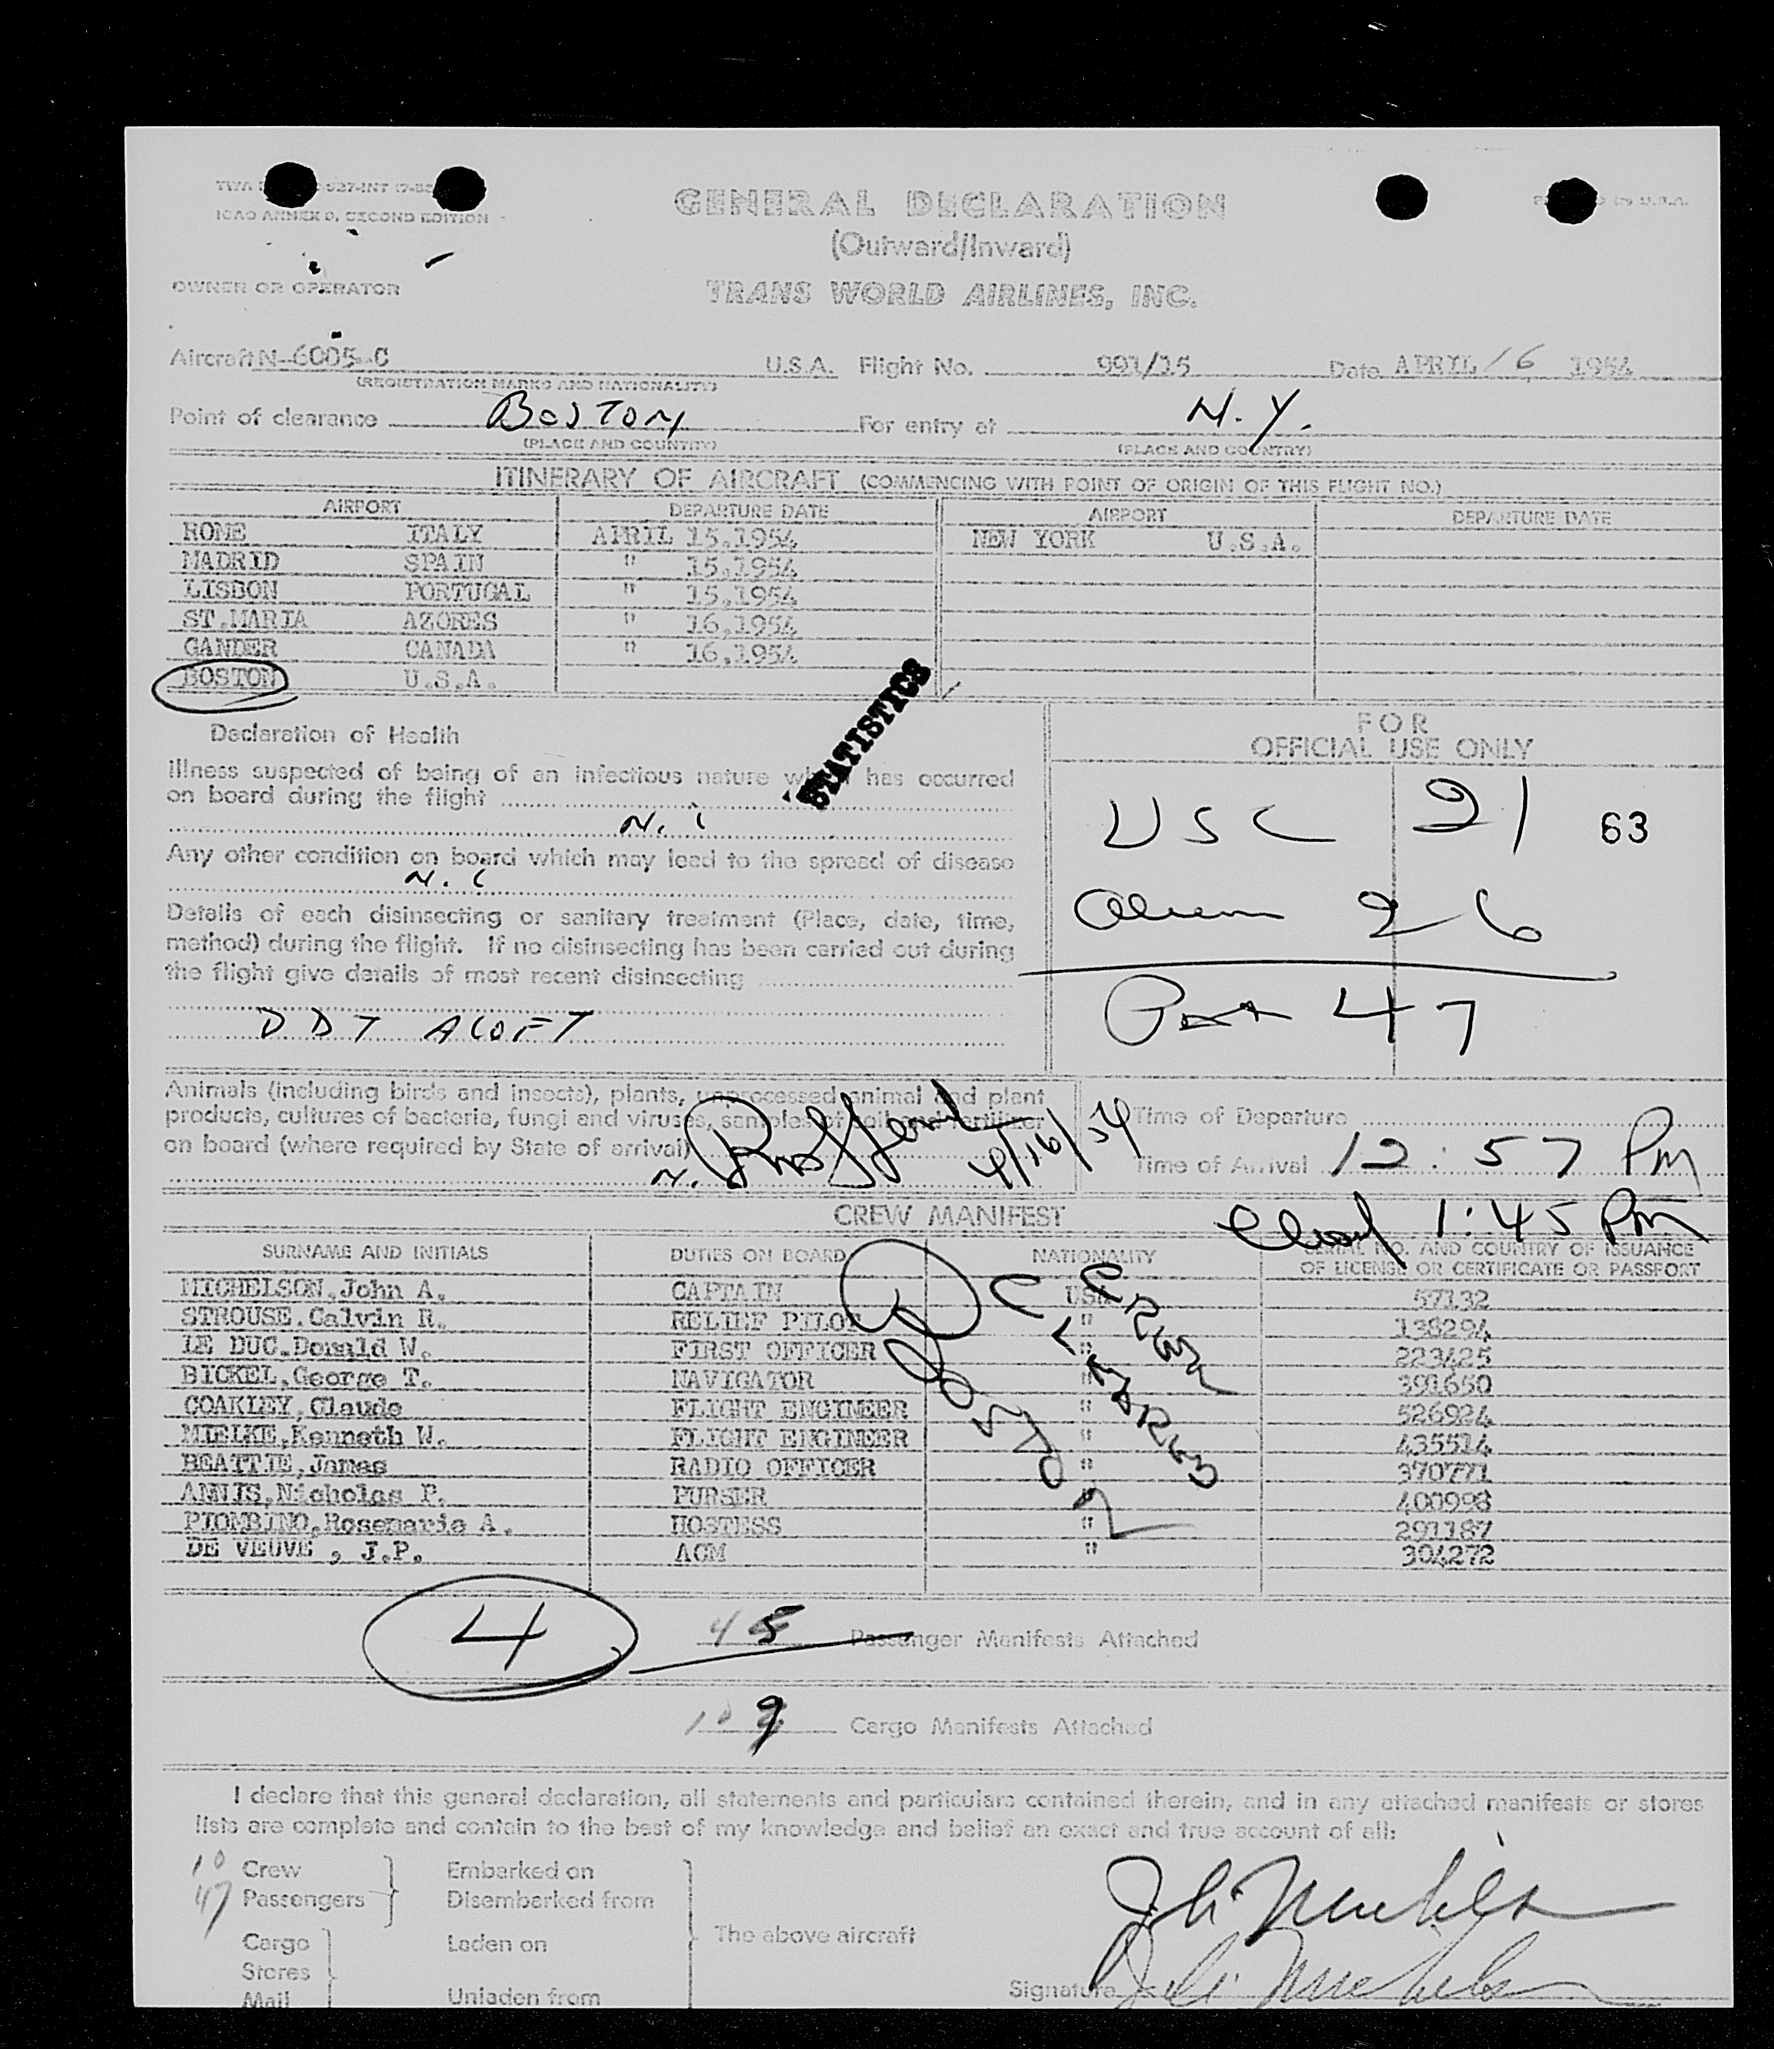 ICAO ANNEX 9, SECOND EDITION
GENERAL DECLARATION
(Outward/Inward)
OWNER OR OPERATOR
TRANS WORLD AIRLINES, INC.
Aircraft N-6005-C U.S.A. Flight No. 991/15 Date APRIL 16 1954
(REGISTRATION MARKS AND NATIONALITY)
Point of clearance BOSTON For entry at N.Y.
(PLACE AND COUNTRY) (PLACE AND COUNTRY)
ITINERARY OF AIRCRAFT (COMMENCING WITH POINT OF ORIGIN OF THIS FLIGHT NO.)
AIRPORT DEPARTURE DATE AIRPORT DEPARTURE DATE
ROME ITALY APRIL 15,1954 NEW YORK U.S.A.
MADRID SPAIN " 15,1954
LISBON PORTUGAL " 15,1954
ST.MARIA AZORES " 16,1954
GANDER CANADA " 16,1954
BOSTON U.S.A.
STATISTICS
Declaration of Health
Illness suspected of being of an infectious nature which has occurred
on board during the flight
Any other condition on board which may lead to the spread of disease
Details of each disinsecting or sanitary treatment (Place, date, time,
method) during the flight. If no disinsecting has been carried out during
the flight give details of most recent disinsecting
DDT ALOFT
FOR
OFFICIAL USE ONLY
USC 21 63
Alien 26
47
Animals (including birds and insects), plants, unprocessed animal and plant
products, cultures of bacteria, fungi and viruses, samples of soil and fertilizer
on board (where required by State of arrival)
4/16/54
Time of Departure
Time of Arrival 12:57 PM
1:45 PM
CREW MANIFEST
SURNAME AND INITIALS DUTIES ON BOARD NATIONALITY SERIAL NO. AND COUNTRY OF ISSUANCE
OF LICENSE OR CERTIFICATE OR PASSPORT
MICHELSON,John A. CAPTAIN USA 57132
STROUSE,Calvin R. RELIEF PILOT " 138294
LE DUC,Donald W. FIRST OFFICER " 223425
BICKEL,George T. NAVIGATOR " 391650
COAKLEY,Claude FLIGHT ENGINEER " 526924
MIELKE,Kenneth W. FLIGHT ENGINEER " 435514
BEATTIE,James RADIO OFFICER " 370771
ANNIS,Nicholas P. PURSER " 400998
PIOMBINO,Rosemarie A. HOSTESS " 291187
DE VEUVE , J.P. ACM " 304272
CREW
CLEARED
4 45 Passenger Manifests Attached
9 Cargo Manifests Attached
I declare that this general declaration, all statements and particulars contained therein, and in any attached manifests or stores
lists are complete and contain to the best of my knowledge and belief an exact and true account of all:
10 Crew Embarked on
47 Passengers Disembarked from
The above aircraft
Cargo Laden on
Stores
Mail Unladen from
Signature